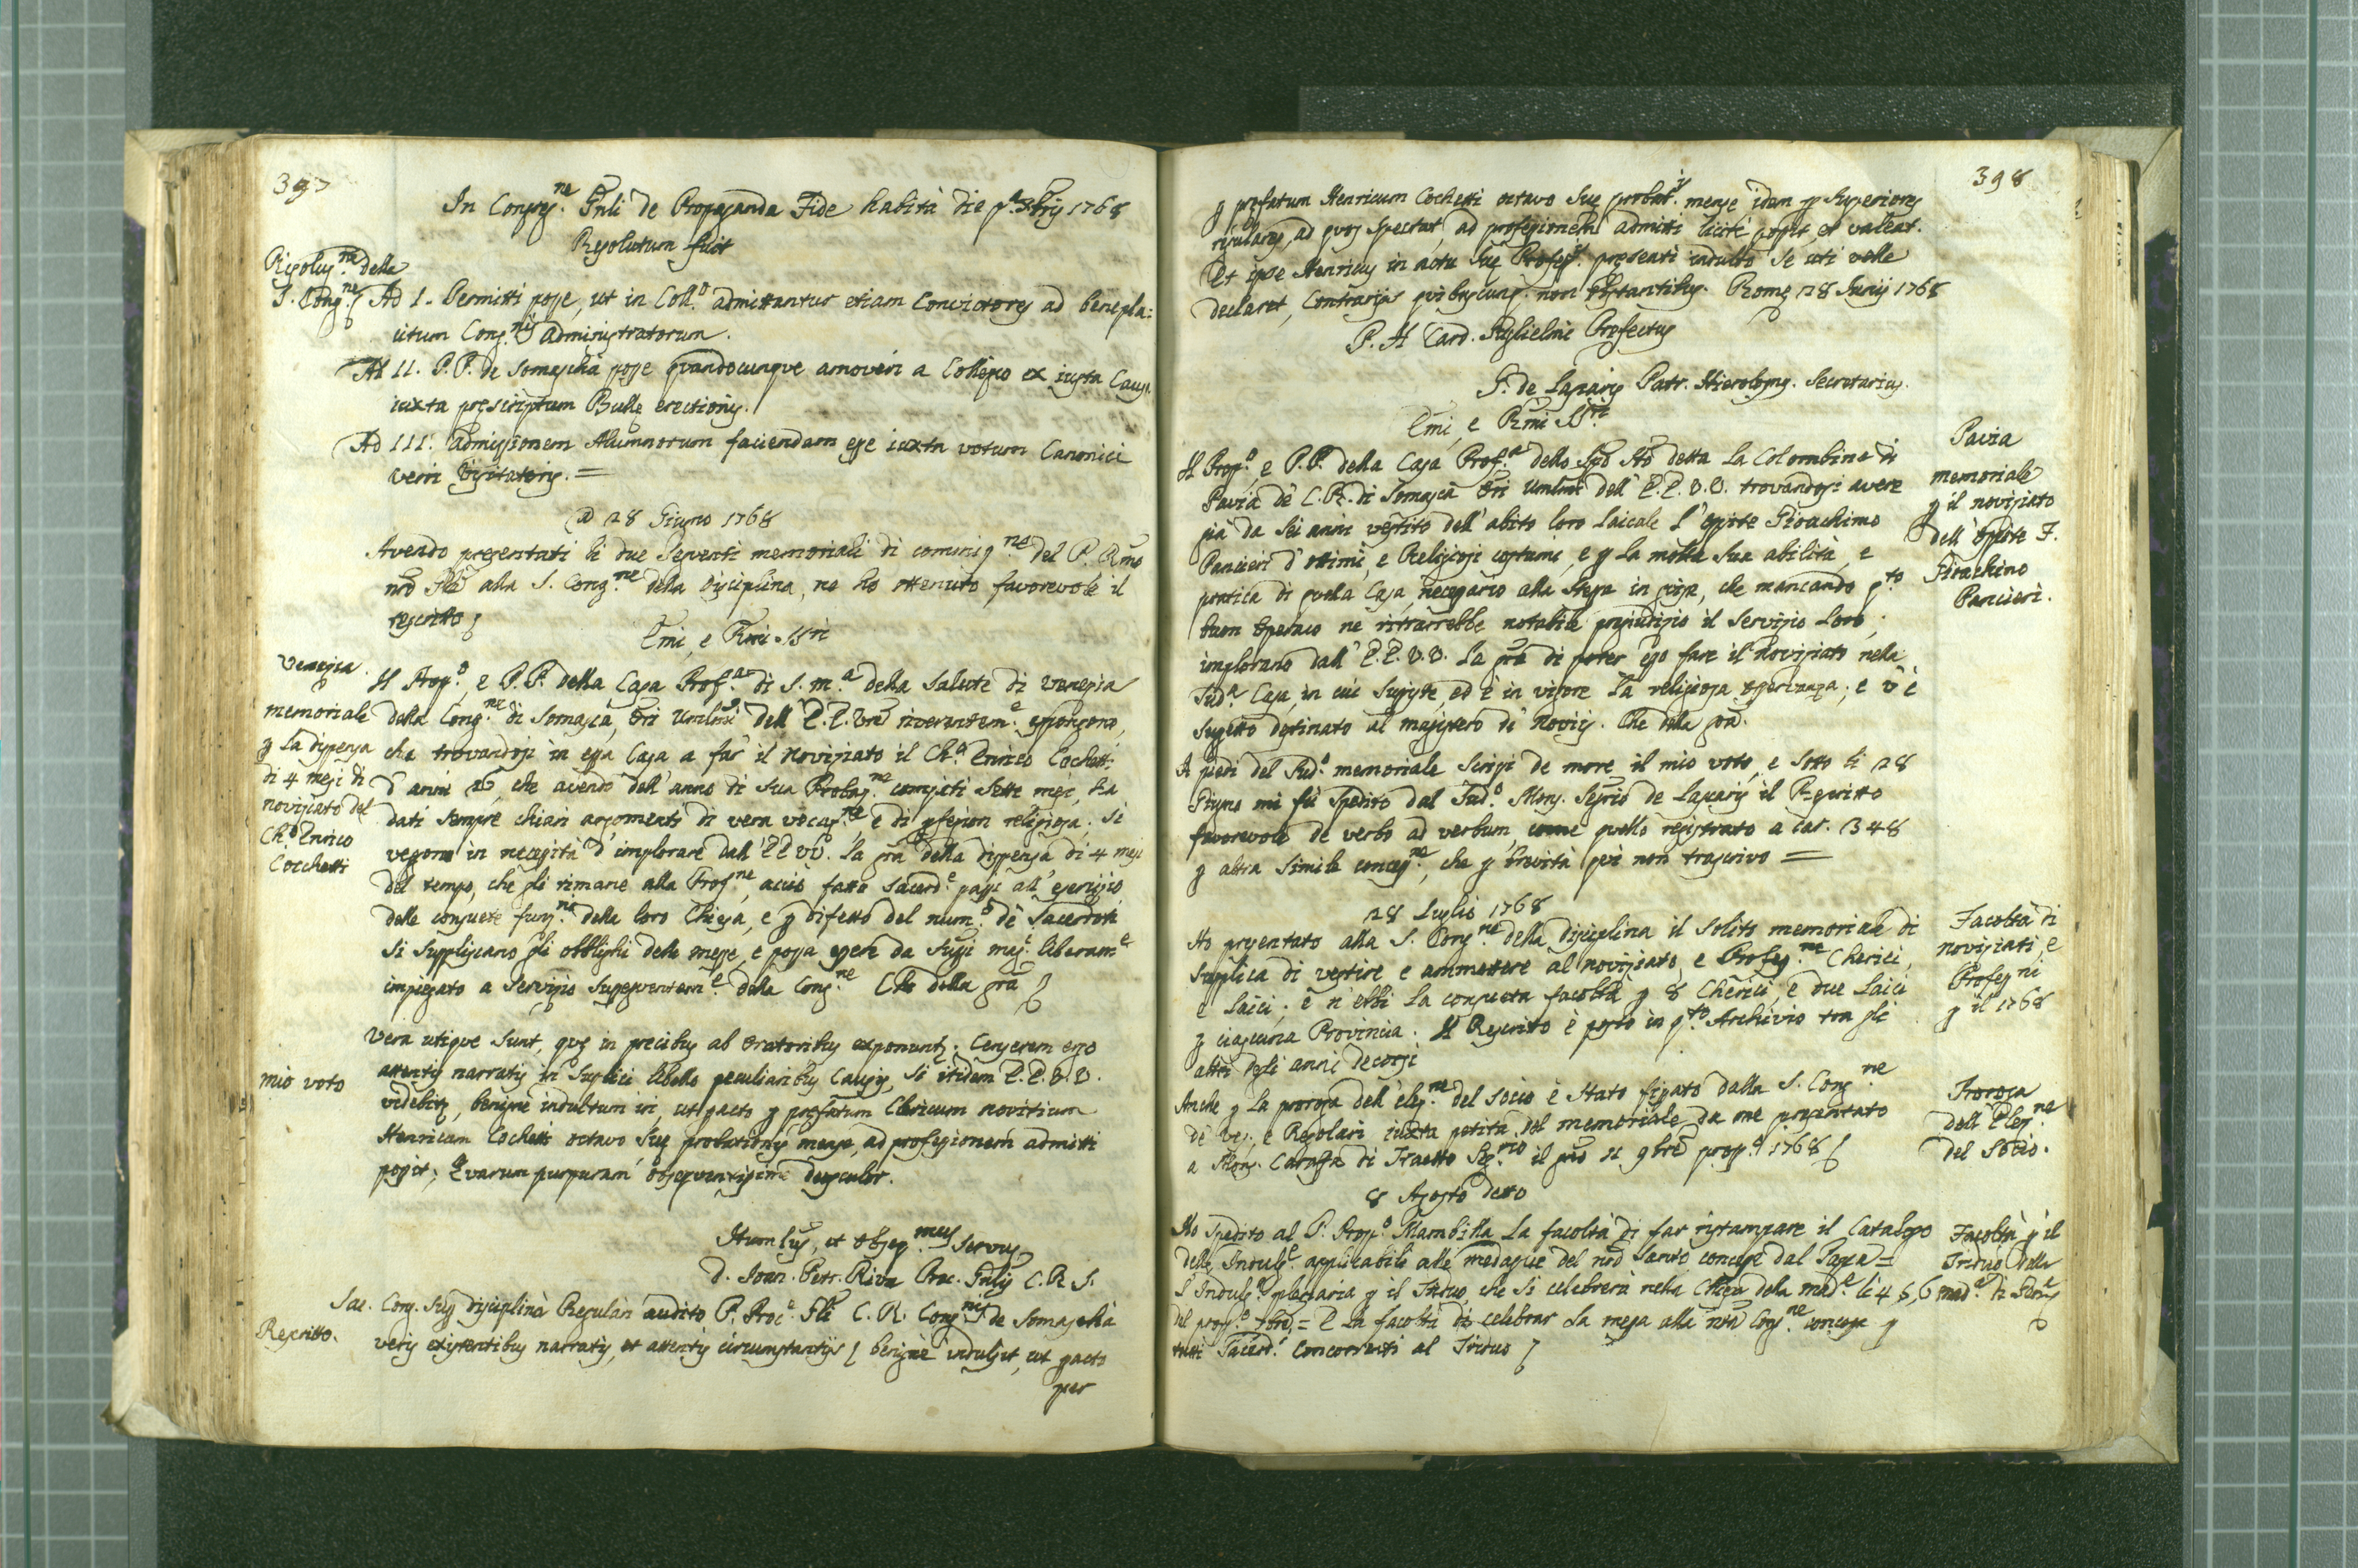 397
In Congreg.ne Gnli de Propaganda Fide habita die pa 8bris 1768
Resolutum fuit
Risoluz.ne della
S. Cong.ne
Ad I. Permitti posse, ut in Coll.o admittantur etiam Convictores ad benepla:
citum Cong.nis Administratorum.
Ad II. P.P. de Somascha posse quandocunque amoveri a Collegio ex iusta Causa
iuxta pręscriptum Bullę erectionis.
Ad III. Admissionem Alumnorum faciendam esse iuxta votum Canonici
Verri Visitatoris. =
A 28 Giugno 1768
Avendo presentati li due seguenti memoriali di commis.ne del P. Rmo
nro Gle alla S. Cong.ne della Disciplina, ne ho ottenuto favorevole il
rescritto
Emi, e Rmi SSri
Venezia.
memoriale
p la dispensa
di 4 mesi di
noviziato del
Ch.o Enrico
Cocchetti
Il Prop.o, e P.P. della Casa Prof.a di S. M.a della Salute di Venezia
della Cong.ne di Somasca, Ori Umlmi dell' E.E. Vre riverentem.e espongono,
che trovandosi in essa Casa a far il Noviziato il Ch.o Enrico Cochetti
d' anni 26, che avendo dell' anno di sua Probaz.ne compiti sette mesi, ha
dati sempre chiari argomenti di vera vocaz.ne e di pfezion religiosa; si
vegono in necessità d' implorare dall' EE VV. la gra della dispensa di 4 mesi
del tempo, che gli rimane alla Prof.ne, acciò fatto Sacerd.e passi all' esercizio
delle consuete funz.ni della loro Chiesa, e p difetto del num.o de' Sacerdoti
si suppliscano gli obblighi delle messe, e possa essere da suoi mag.i liberam.e
impiegato a servizio susseguentem.e della Cong.ne Che della gra
mio voto
Vera utique sunt, quę in precibus ab Oratoribus exponuntr. Censerem ergo
attentis narratis in supplici libello peculiaribus Causis, si itidem E.E.V.V.
videbitr, benigne indultum iri, ut pacto p prefatum Clericum novitium
Henricum Cochetti octavo suę probationis mense, ad professionem admitti
possit; Quarum purpuram obsequentissime deosculor.
Humlus, et Obseq.mus servus
D. Ioan. Petr. Riva Proc. Gnlis C.R.S.
Rescritto.
Sac. Cong. Sup disciplina Regulari audito P. Proc.e Gli C.R. Cong.nis de Somascha
veris existentibus narratis, et attentis circumstantiis benigne indulsit, ut pacto
per
398
p prefatum Henricum Cochetti octavo suę probat.is mense idem p Superiores
regulares, ad quos spectat, ad professionem admitti licite possit, et valeat.
Et ipse Henricus in actu suę Profess.is pręsenti indulto se uti velle
declaret, Contrariis quibuscunq. non obstantibus. Romę 28 Iunij 1768
P. H Card. Guglielmi Prefectus
G. de Lazaris Patr. Hierosolyms. Secretarius.
Emi, e Rmi SSri
Pavia
memoriale
p il noviziato
dell' Ospite F.
Gioachino
Pancieri.
Il Prop.o, e P.P. della Casa Prof.a dello Spo Sto detta la Colombina di
Pavia de' C.R. di Somasca Ori Umlmi dell' E.E.V.V. trovandosi avere
già da sei anni vestito dell' abito loro laicale l' Ospite Gioachimo
Pancieri d' ottimi, e Religiosi costumi, e p la molta sua abilità, e
pratica di quella Casa, necessario alla stessa in guisa, che mancando q.to
buon Operaio ne ritrarrebbe notabile pregiudizio il servizio loro,
implorano dall' E.E.V.V. la gra di poter esso fare il Noviziato nella
Sud.a Casa, in cui sussiste, ed è in vigore la religiosa osservanza; e v' è
sugetto destinato al magistero di Novizj. Che della gra.
A piedi del Sud.o memoriale scrissi de more il mio voto, e sotto li 28
Giugno mi fù spedito dal Sud.o Mons. Segrio de Lazaris il Rescritto
favorevole de verbo ad verbum, come quello registrato a car. 348
p altra simile concess.ne, che p brevità qui non trascrivo =
28 Luglio 1768
Facoltà di
noviziati, e
Profess.ni
p il 1768
Ho presentato alla S. Cong.ne della Disciplina il solito memoriale di
supplica di vestire e ammettere al noviziato, e Profess.ne Cherici,
e laici; e n' ebbi la consueta facoltà p 8 Cherici, e due laici
p ciascuna Provincia. Il Rescritto è posto in q.to Archivio tra gli
altri degli anni decorsi
Proroga
dell' Elez.ne
del Socio.
Anche p la proroga dell' elez.ne del Socio è stato segnato dalla S. Cong.ne
de' Ves. e Regolari iuxta petita del memoriale da me presentato
a Mons. Caraffa di Traetto Seg.rio il pmo di 9bre pross.o 1768
8 Agosto detto
Facoltà p il
Triduo della
mad.a di
Ho spedito al P. Prop.o Marabilla la facoltà di far ristampare il Catalogo
delle Indulg.e applicabili alle medaglie del nro Santo concesse dal Papa =
L' Indulg.a plenaria p il Triduo, che si celebrerà nella Chiesa della mad.a li 4, 5, 6
del pross.o 7bre, = E la facoltà di celebrar la messa alla nra Cong.ne concessa p
tutti Sacerd.i concorrenti al Triduo